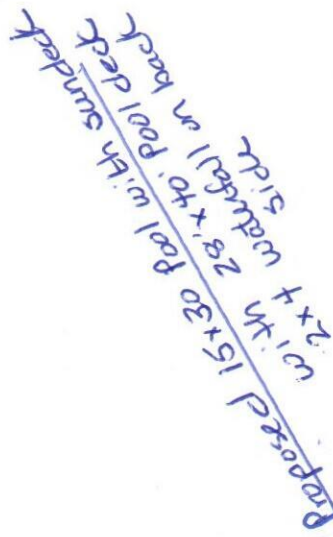 Proposed 15x30 Pool with sundeck
with 28'x40' Pool deck
2x4 waterfall on back
side